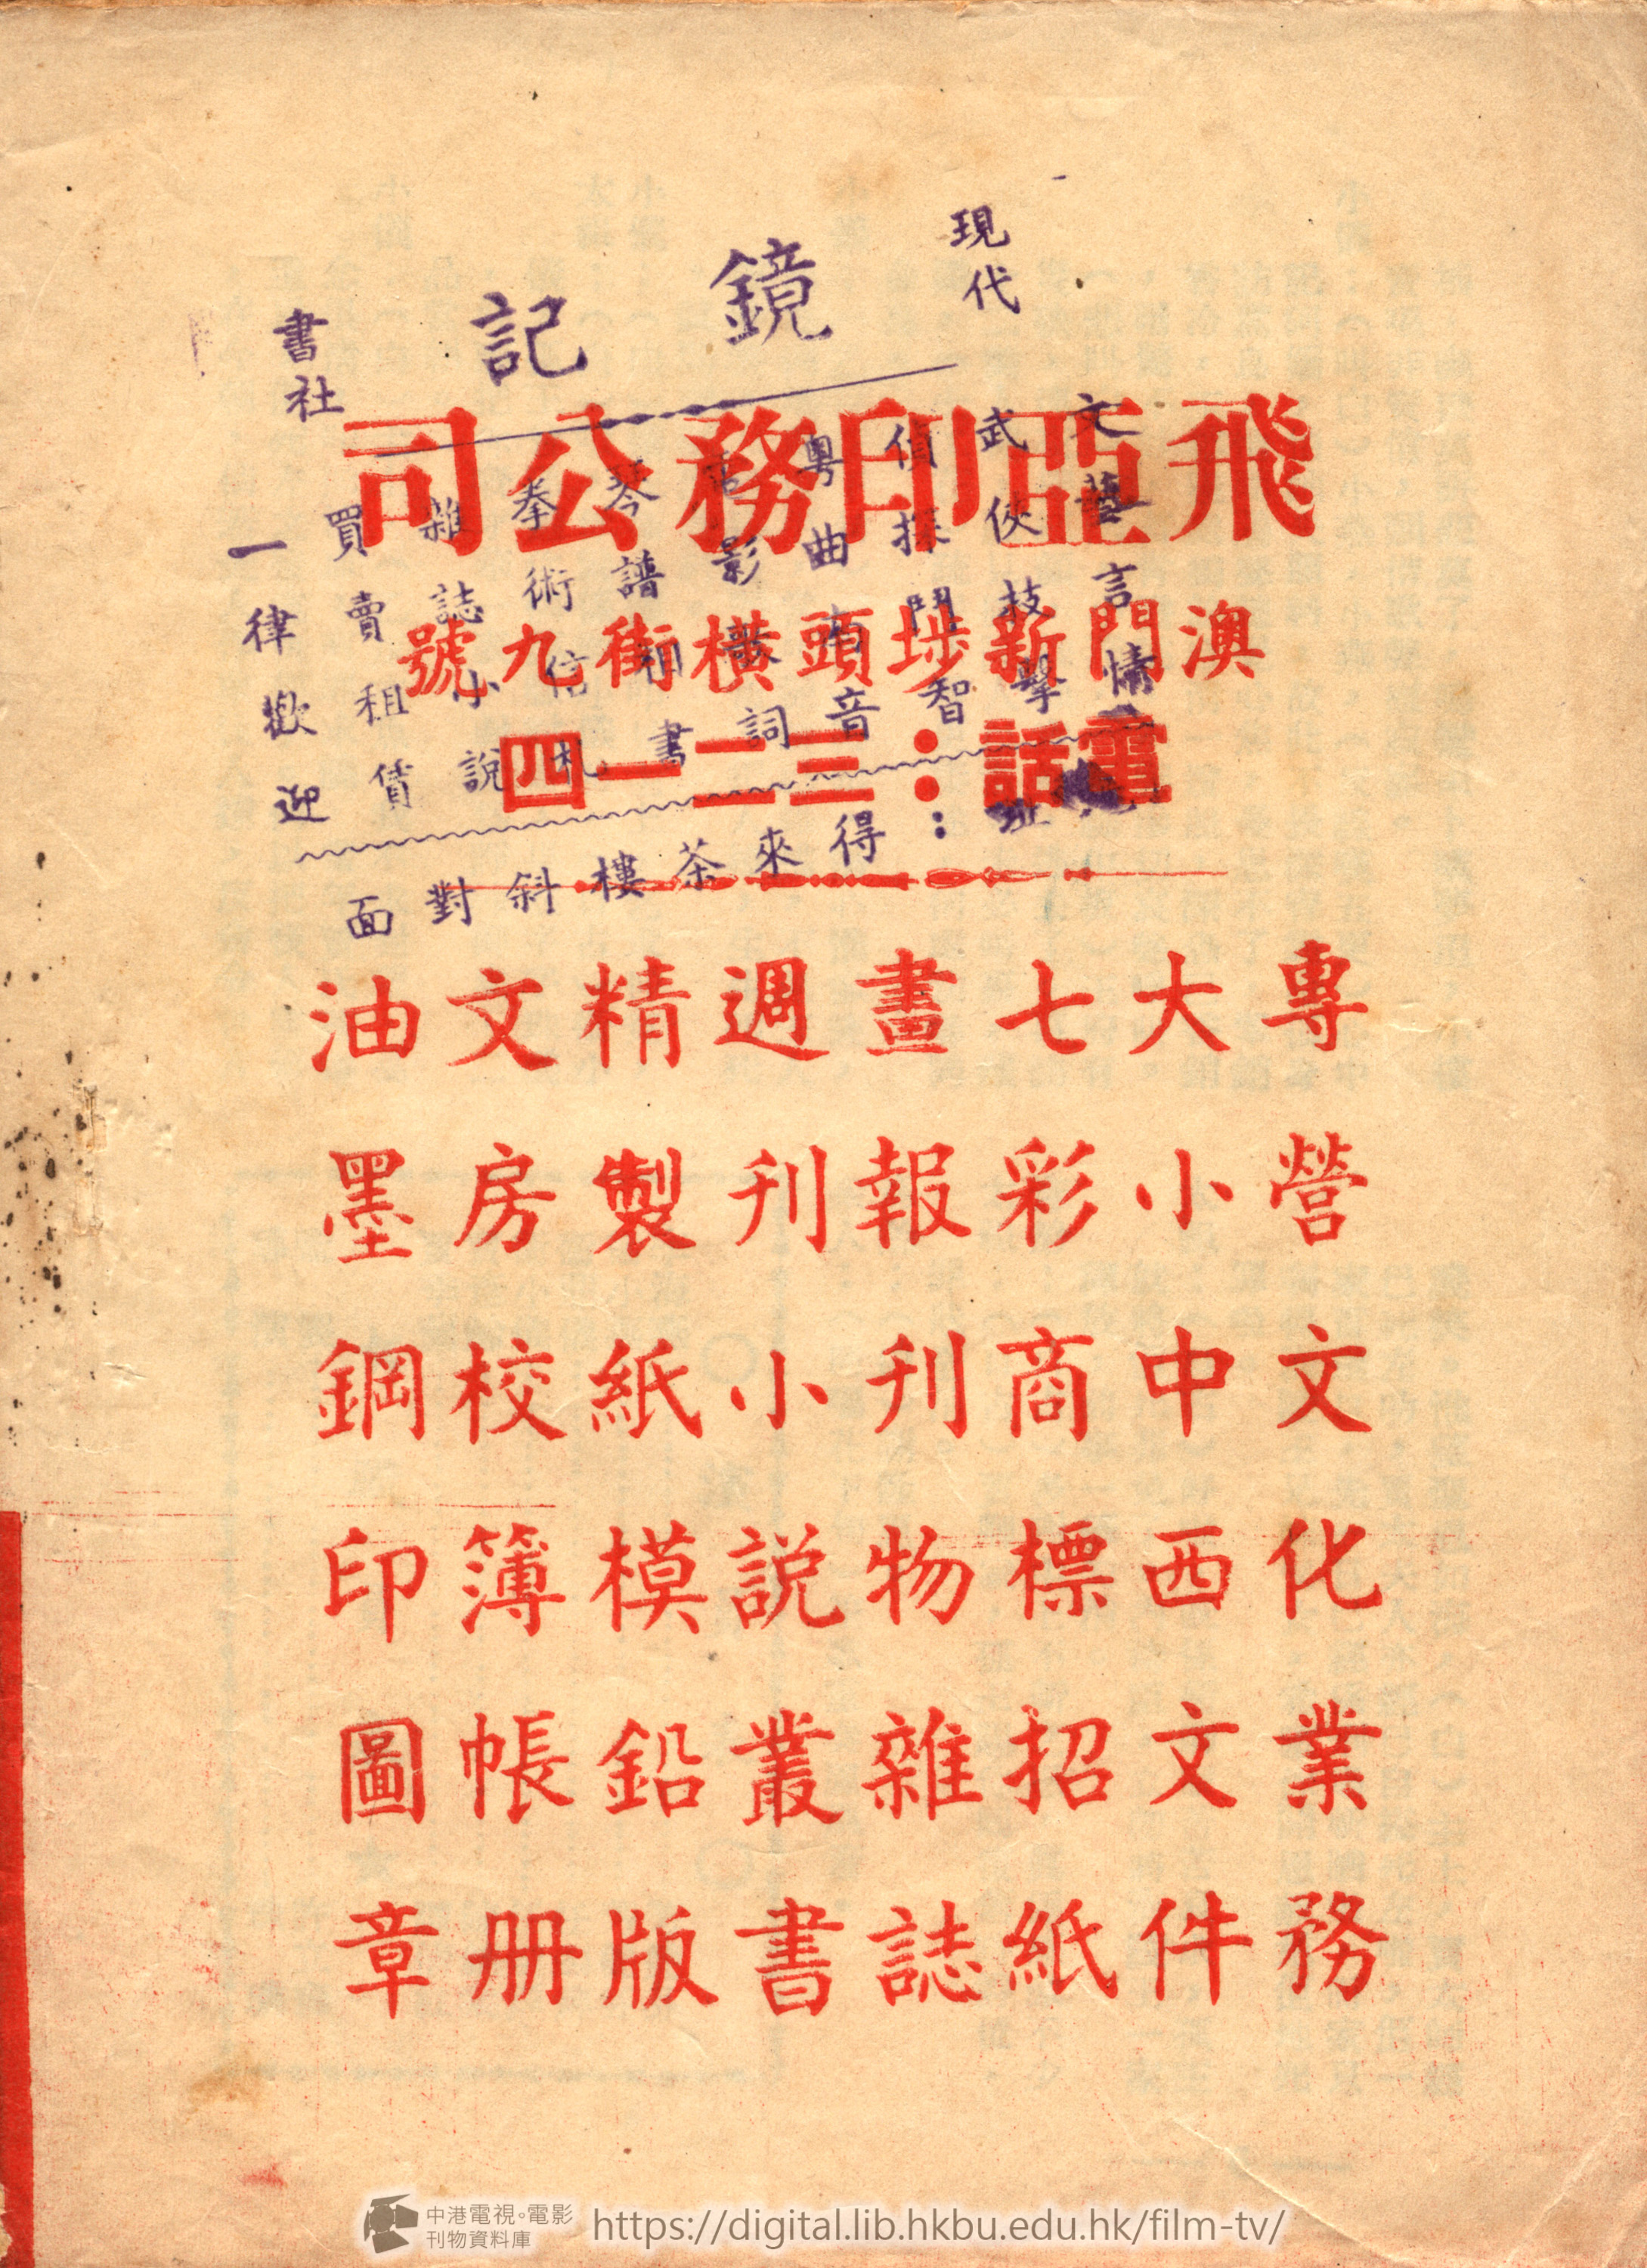 飛亞印務公司
澳門新埗頭橫街九號
電話：三二一四
專營文化業務
大小中西文件
七彩商標招紙
畫報刊物雜誌
週刊小說叢書
精製紙模鉛版
文房校簿帳册
油墨鋼印圖章
現代
鏡記
書社
文藝言情
武俠技擊
偵探鬥智
粵曲音
影詞
琴譜書
拳術信札
雜誌小說
買賣租賃
一律歡迎
址：得來茶樓斜對面
中港電視。電影
刊物資料庫
https://digital.lib.hkbu.edu.hk/film-tv/